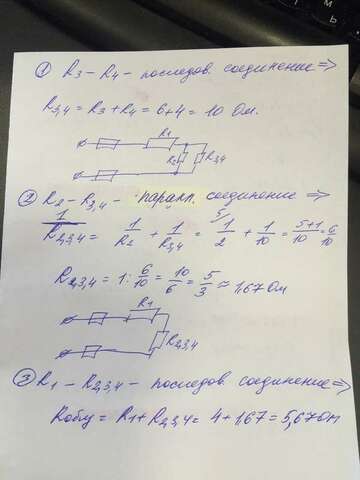 ① R3 – R4 – последов. соединение ⇒
R3,4 = R3 + R4 = 6+4 = 10 Ом.
R1
R2 R3,4
② R2 – R3,4 – паралл. соединение ⇒
1/R2,3,4 = 1/R2 + 1/R3,4 = 5/ 1/2 + 1/10 = 5+1/10 = 6/10
R2,3,4 = 1: 6/10 = 10/6 = 5/3 ≈ 1,67 Ом
R1
R2,3,4
③ R1 – R2,3,4 – последов. соединение ⇒
Rобщ = R1 + R2,3,4 = 4 + 1,67 = 5,67 Ом